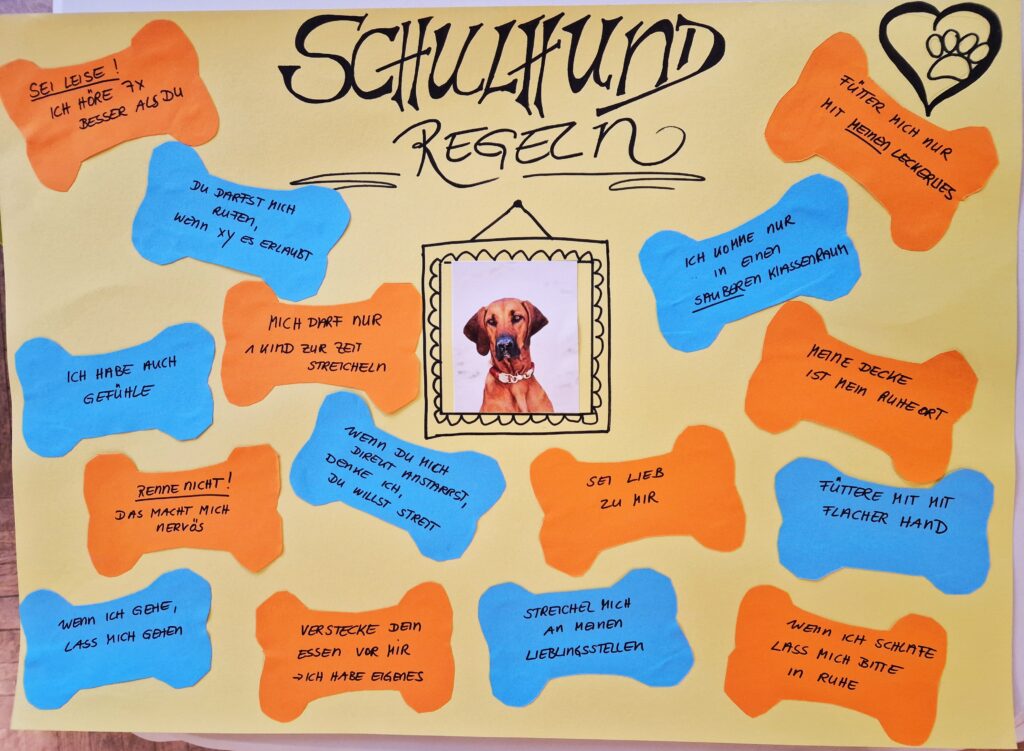 SCHULHUND
REGELN
SEI LEISE!
ICH HÖRE 7X
BESSER ALS DU
FÜTTER MICH NUR
MIT MEINEN LECKERLIES
DU DARFST MICH
RUFEN,
WENN XY ES ERLAUBT
ICH KOMME NUR
IN EINEN
SAUBEREN KLASSENRAUM
MICH DARF NUR
1 KIND ZUR ZEIT
STREICHELN
ICH HABE AUCH
GEFÜHLE
MEINE DECKE
IST MEIN RUHEORT
WENN DU MICH
DIREKT ANSTARRST,
DENKE ICH,
DU WILLST STREIT
RENNE NICHT!
DAS MACHT MICH
NERVÖS
SEI LIEB
ZU MIR
FÜTTERE MIT MIT
FLACHER HAND
WENN ICH GEHE,
LASS MICH GEHEN
VERSTECKE DEIN
ESSEN VOR MIR
→ICH HABE EIGENES
STREICHEL MICH
AN MEINEN
LIEBLINGSSTELLEN
WENN ICH SCHLAFE
LASS MICH BITTE
IN RUHE